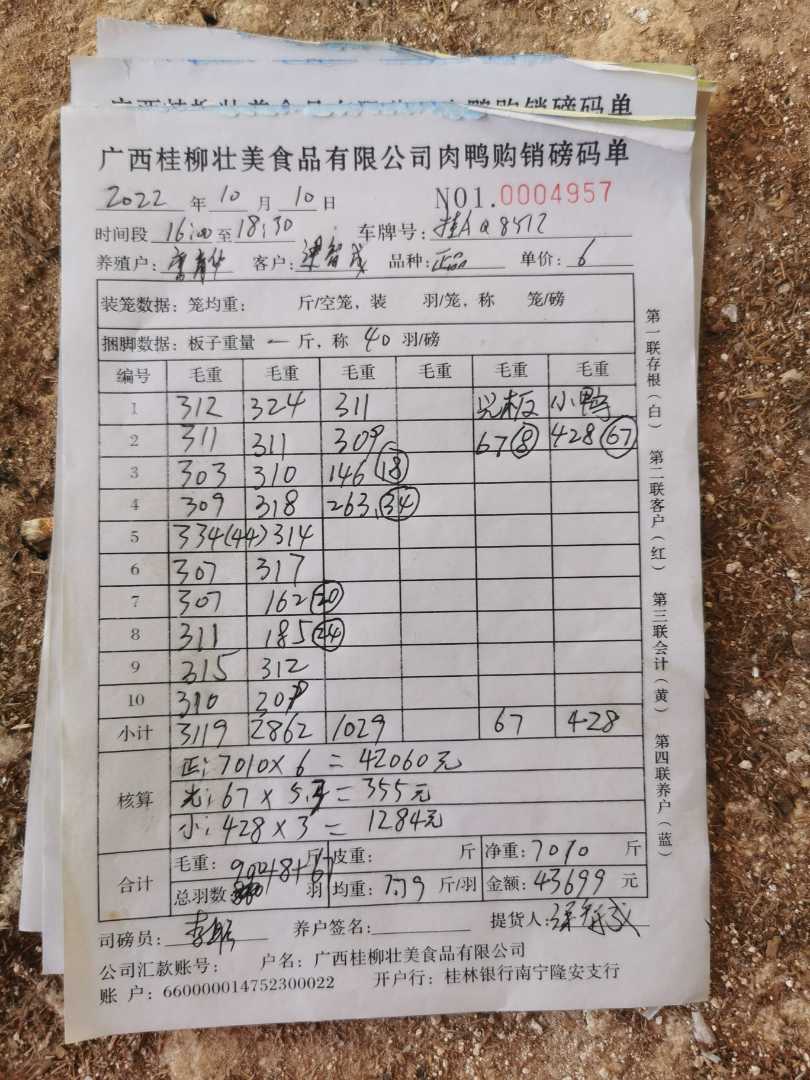 广西桂柳壮美食品有限公司肉鸭购销磅码单
2022 年 10 月 10 日 NO1.0004957
时间段 16:00 至 18:30 车牌号: 桂A Q8512
养殖户: 客户: 梁智成 品种: 正品 单价: 6
装笼数据: 笼均重: 斤/空笼, 装 羽/笼, 称 笼/磅
捆脚数据: 板子重量 一 斤, 称 40 羽/磅
编号 毛重 毛重 毛重 毛重 毛重 毛重
1 312 324 311 光板 小鸭
2 311 311 309 67 (8) 428 (67)
3 303 310 146 (18)
4 309 318 263 (34)
5 334(44) 314
6 307 317
7 307 162 (20)
8 311 185 (24)
9 315 312
10 310 309
小计 3119 2862 1029 67 428
核算
正: 7010×6 = 42060元
光: 67×5.3 = 355元
小: 428×3 = 1284元
合计
毛重: 斤 皮重: 斤 净重: 7010 斤
总羽数 900+8+67 羽 均重: 7.79 斤/羽 金额: 43699 元
司磅员: 养户签名: 提货人:
公司汇款账号: 户名: 广西桂柳壮美食品有限公司
账 户: 660000014752300022 开户行: 桂林银行南宁隆安支行
第一联存根(白) 第二联客户(红) 第三联会计(黄) 第四联养户(蓝)